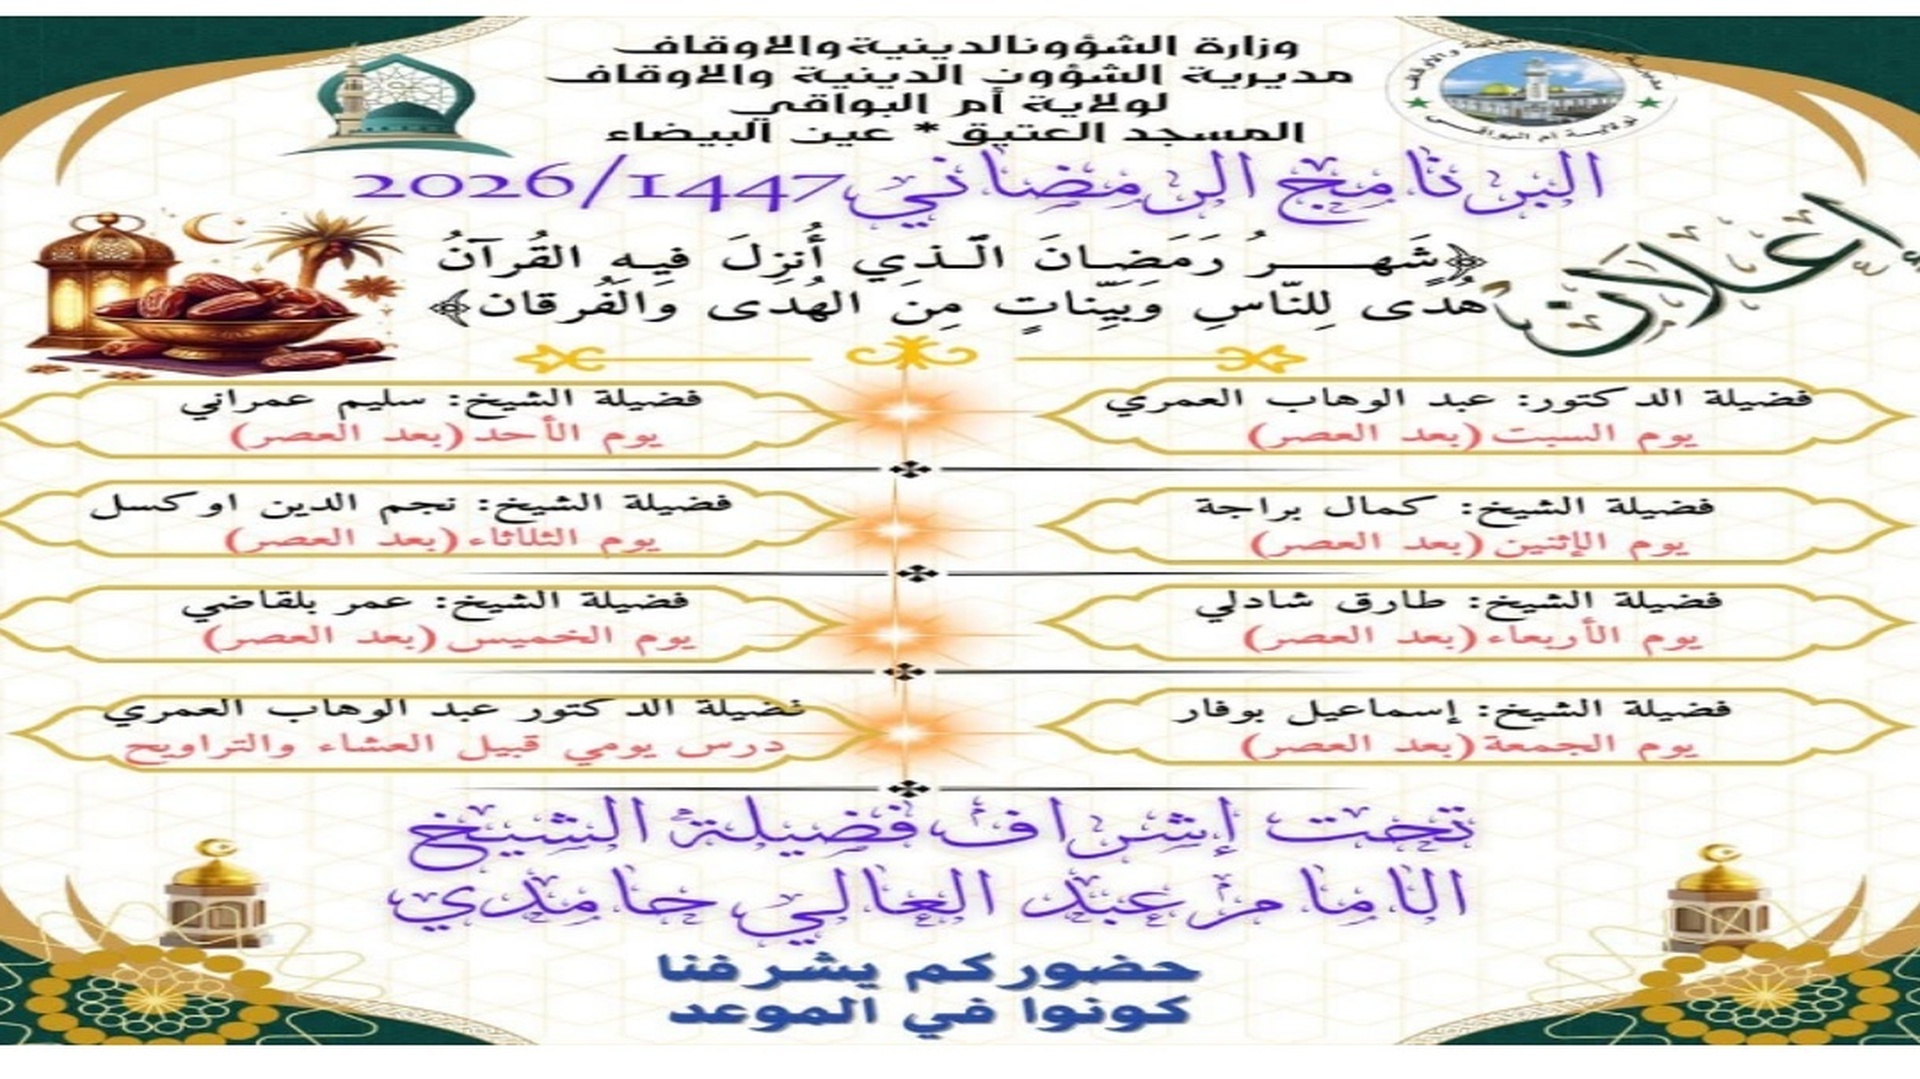 وزارة الشؤونالدينية والاوقاف
مديرية الشؤوون الدينية والاوقاف
لولاية أم البواقي
المسجد العتيق * عين البيضاء
البرنامج الرمضاني 2026/1447
إعلان
﴿شَهـــــرُ رَمَضـانَ الَّـذي أُنزِلَ فيـهِ القُرآنُ
هُدًى لِلنّاسِ وَبَيِّناتٍ مِنَ الهُدى وَالفُرقان﴾
فضيلة الدكتور: عبد الوهاب العمري
يوم السبت (بعد العصر)
فضيلة الشيخ: سليم عمراني
يوم الأحد (بعد العصر)
فضيلة الشيخ: كمال براجة
يوم الإثنين (بعد العصر)
فضيلة الشيخ: نجم الدين اوكسل
يوم الثلاثاء (بعد العصر)
فضيلة الشيخ: طارق شادلي
يوم الأربعاء (بعد العصر)
فضيلة الشيخ: عمر بلقاضي
يوم الخميس (بعد العصر)
فضيلة الشيخ: إسماعيل بوفار
يوم الجمعة (بعد العصر)
فضيلة الدكتور عبد الوهاب العمري
درس يومي قبيل العشاء والتراويح
تحت إشراف فضيلة الشيخ
الامام عبد العالي حامدي
حضوركم يشرفنا
كونوا في الموعد